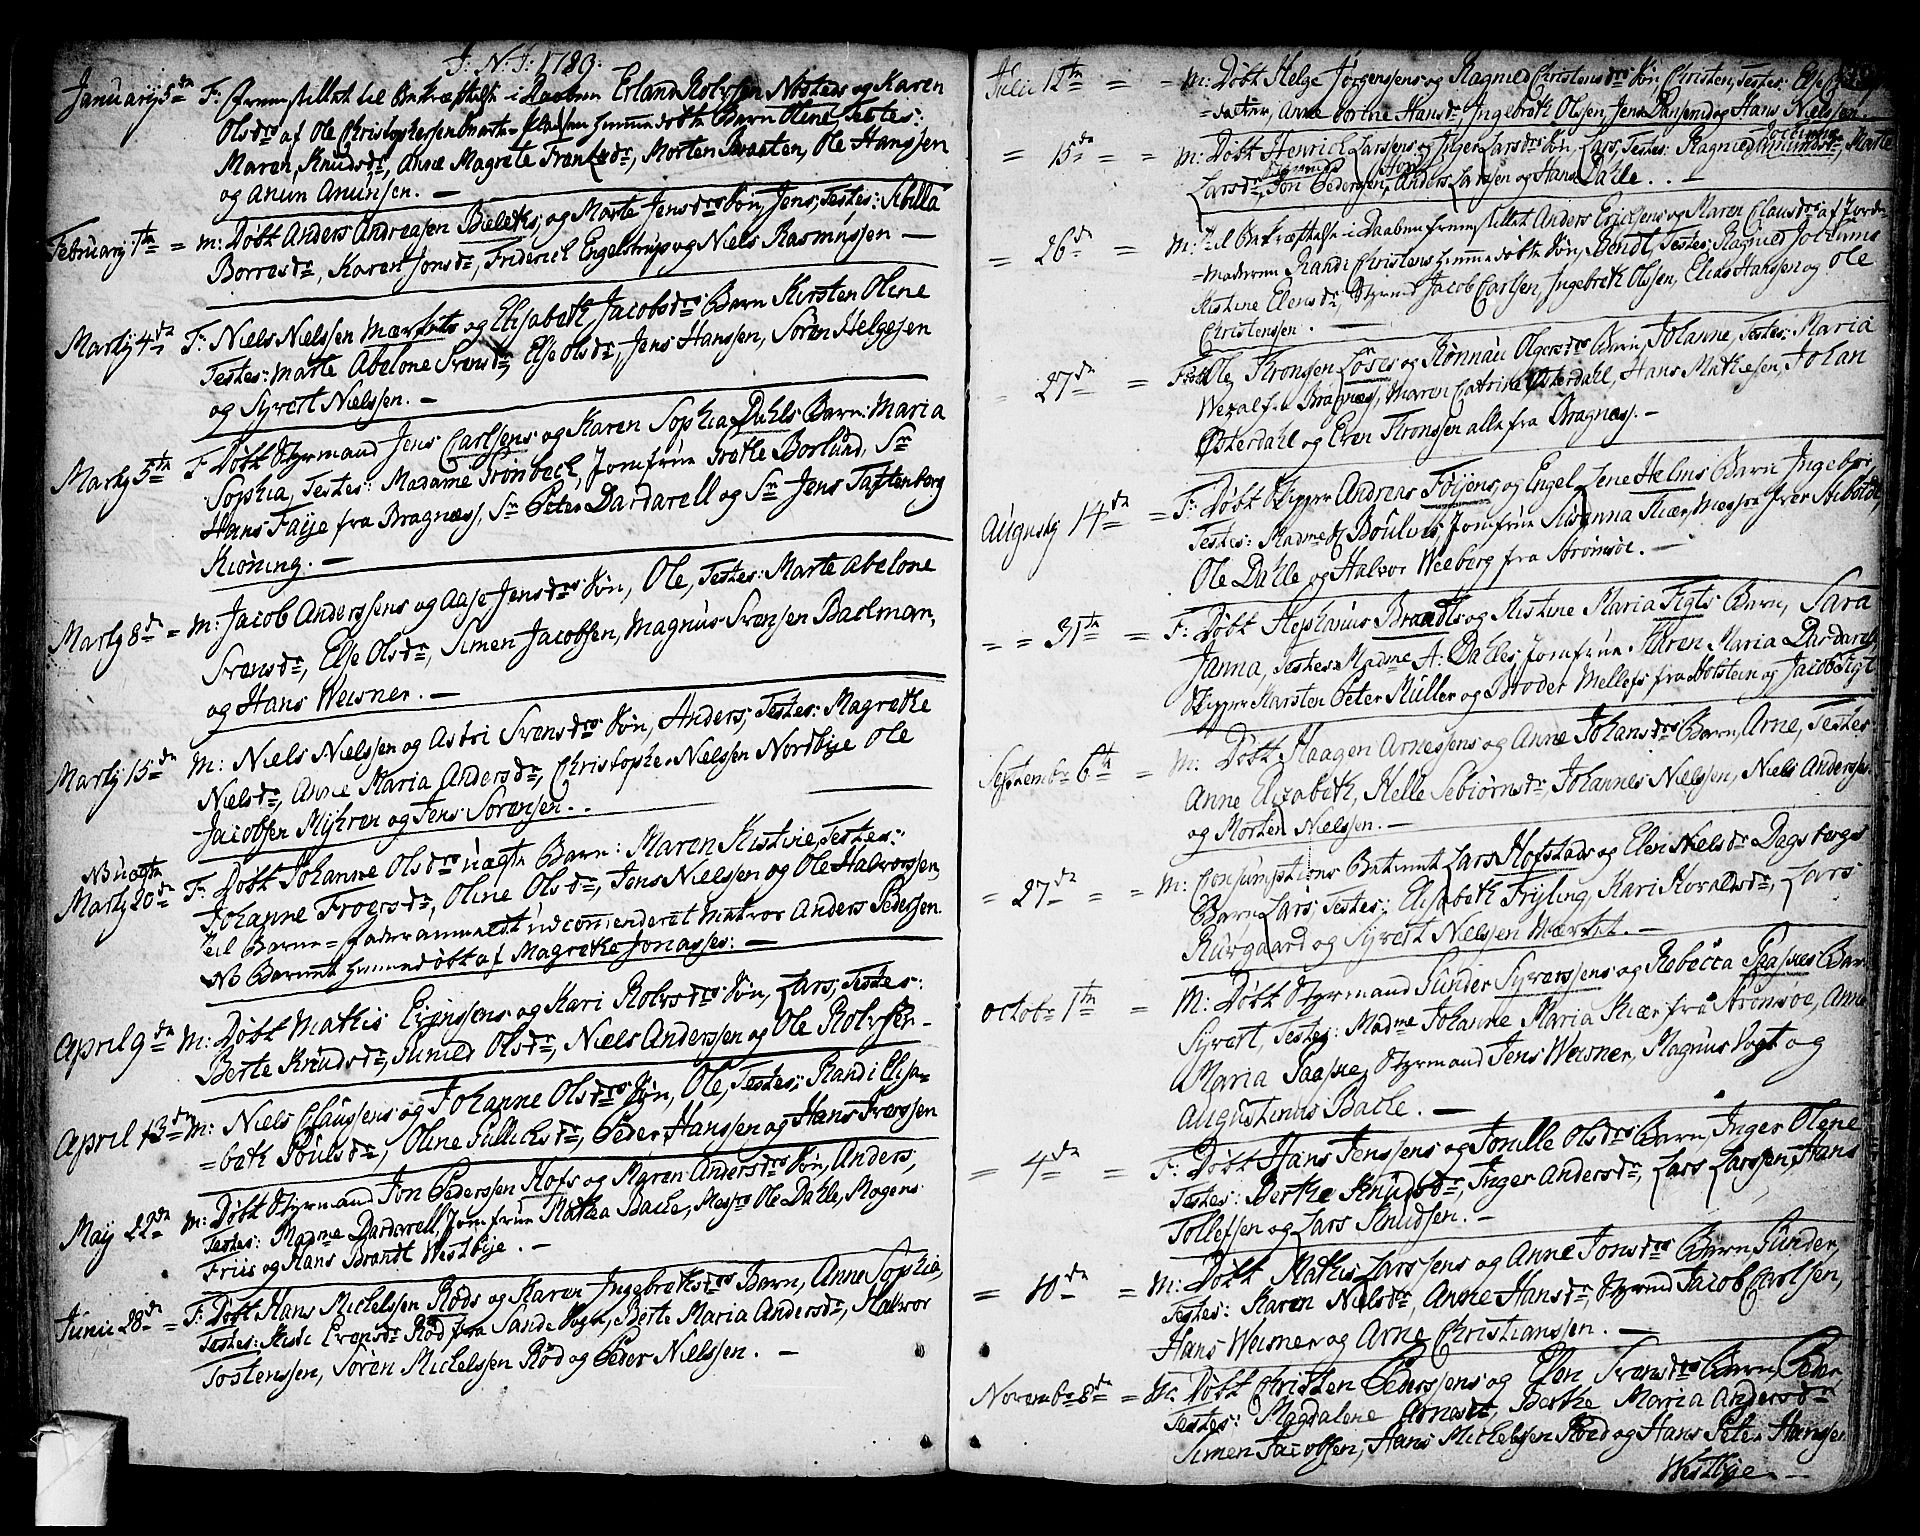 J: N: J: 1789:
January 5te F: Fremstillet til Bekræftelse i Daaben Erland Rolvssen Nøstads og Karen
Olsdrs af Ole Christophersen hiemmedøbte Barn Olene, Testes:
Maren Knudsdr, Anne Magrete Frantzdr, Morten Braaten, Ole Hanssen
og Anun Anunsen. —
February 1te = M: Døbt Anders Andreasen Beleths, og Marte Jensdrs Søn, Jens, Testes: Sibilla
Borresdr, Karen Jonsdr, Friderich Engelstrup og Niels Rasmussen —
Marty 4de F: Niels Nielssen Mærkets og Elisabeth Jacobsdrs Barn Kirsten Olene
Testes: Marte Abelone Svensdr, Else Olsdr, Jens Hansen, Søren Helgesen
og Syvert Nielssen. —
Marty 5te F: Døbt Styrmand Jens Carlsens og Karen Sophia Dahls Barn: Maria
Sophia, Testes: Madame Grønbech, Jomfrue Grethe Borlund, Sr
Hans Faye fra Bragnæss, Sr Peter Dardarell og Sr Jens Tastenberg
Kiøning. —
Marty 8de = M: Jacob Anderssens og Aase Jensdrs Søn, Ole, Testes: Marte Abelone
Svensdr, Else Olsdr, Simen Jacobsen, Magnus Svensen Baalman,
og Hans Weisner. —
Marty 15de M: Niels Nielssen og Astri Svensdrs Søn, Anders, Testes: Magrethe
Nielsdr, Anne Maria Andersdr, Christopher Nielssen Nordbye Ole
Jacobsen Myhren og Jens Sørensen. .
NB uægte
Marty 20de F: Døbt Johanne Olsdrs uægte Barn: Maren Kistine, Testes:
Johanne Frogersdr, Oline Olsdr, Jens Nielssen og Ole Halvorssen,
til Barne-fader anmeldt udcommenderet Matros Anders Pedersen
NB Barnet hiemmedøbt af Magrethe Jonasses: —
April 9de M: Døbt Mathis Evenssens og Kari Rolvsdrs Søn, Lars, Testes:
Berte Knudsdr, Gunild Olsdr, Niels Anderssen og Ole Rolvssen —
April 13de M: Niels Claussens og Johanne Olsdrs Søn, Ole, Testes: Randi Elisa-
=beth Poulsdr, Oline Gullichsdr, Peder Hanssen og Hans Iverssen
May 22de M: Døbt Styrmand Jon Pederssen Hofs og Maren Andersdrs Søn, Anders,
Testes: Madme Dardarell, Jomfrue Mathea Bache, Messr Ole Dahle, Mogens
Friis og Hans Brandt Westbye. —
Junii 28de = F: Døbt Hans Michelssen Røds og Karen Ingebrethsdrs Barn, Anne Sophia,
Testes: Kisti Evensdr Rød fra Sande Sogn, Berte Maria Andersdr, Halvor
Tostenssen, Søren Michelssen Rød og Peder Nielssen. —
Julii 12te = = M: Døbt Helge Jørgenssens og Ragnild Christensdrs Søn, Christen, Testes:
=datter, Anne Dorthe Hansdr, Ingebreth Olssen, og Hans Nielssen.
= 15de = = M: Døbt Henrich Larssens og Inger Larsdrs Søn, Lars, Testes: Ragnild Jochumsdr, Marte
Larsdr, Styrmd Jon Pedersen Hof, Anders Larssen og Hans Dahle. . .
= 26de = M: Til Bekræftelse i Daaben fremstillet Anders Erichsens og Maren Clausdrs af Jorde-
=moderen Randi Christens hiemmedøbte Søn, Bendt, Testes: Ragnild Jochums
Kistine Elensdr, Styrmd Jacob Carlsen, Ingebreth Olssen, Elias Hanssen og Ole
Christenssen. —
= 27de = F: Døbt Ole Tronssen Løses og Rønnau Olgersdrs Barn, Johanne, Testes: Maria
Bragnæss, Maren Catrina Østerdahl, Hans Mathiesen, Johan
Østerdahl og Even Tronssen alle fra Bragnæss. —
Augusty 14de = F: Døbt Skipper Andreas Føyens, og Engel Lene Helms Barn Ingebor,
Testes: Madme Boulvis, Jomfrue Susanna Kiær, Messr Iver Stiboldt,
Ole Dahle og Halvor Weeberg fra Strømsøe. —
= = 31te = F: Døbt Stephanus Brandts og Kistine Maria Figts Barn, Sara
Janna, Testes: Madme A: Dahles, Jomfrue Maren Maria Dardarell,
Skipper Karsten Peter Müller og Broder Mellefs fra Holstein og Jacob Figt
Septembr 6te = M: Døbt Haagen Arnessens og Anne Johansdrs Barn, Arne, Testes:
Anne Elisabeth, Helle Sebiørnsdr, Johannes Nielssen, Niels Anderssen
og Morten Nielssen. —
= 27de = = M: Consumptions Betient Lars Hofstads og Elen Nielsdr Dagsbergs
Barn, Lars, Testes: Elisabeth Fryling, Kari Haraldsdr, Lars
Ruvgaard og Syvert Nielssen Mærket. —
Octobr 1te = M: Døbt Styrmand Gunder Syverssens og Rebecca Paaskes Barn
Syvert, Testes: Madme Johanne Maria Kiær fra Strømsøe, Anne
Maria Paaske, Styrmand Jens Weisner, Magnus Vogt og
Augustinus Bache. —
= 4de = F: Døbt Hans Jenssens og Tonille Olsdrs Barn, Inger Olene
Testes: Berthe Knudsdr, Inger Andersdr, Lars Larssen, Hans
Tollefsen og Lars Knudsen. —
= 10de = M: Døbt Mathis Larssens og Anne Jonsdrs Barn Gunder,
Testes: Karen Nielsdr, Anne Hansdr, Styrmd Jacob Carlsen,
Hans Weisner og Arne Christianssen. —
Novembr 8de = M: Døbt Christen Pederssens og Elen Svensdrs Barn, Peder,
Testes: Magdalene Arnesdr, Berthe Maria Andersdr
Simen Jacobsen, Hans Michelssen Røed og Hans Peter Hanssen
Westbye. —